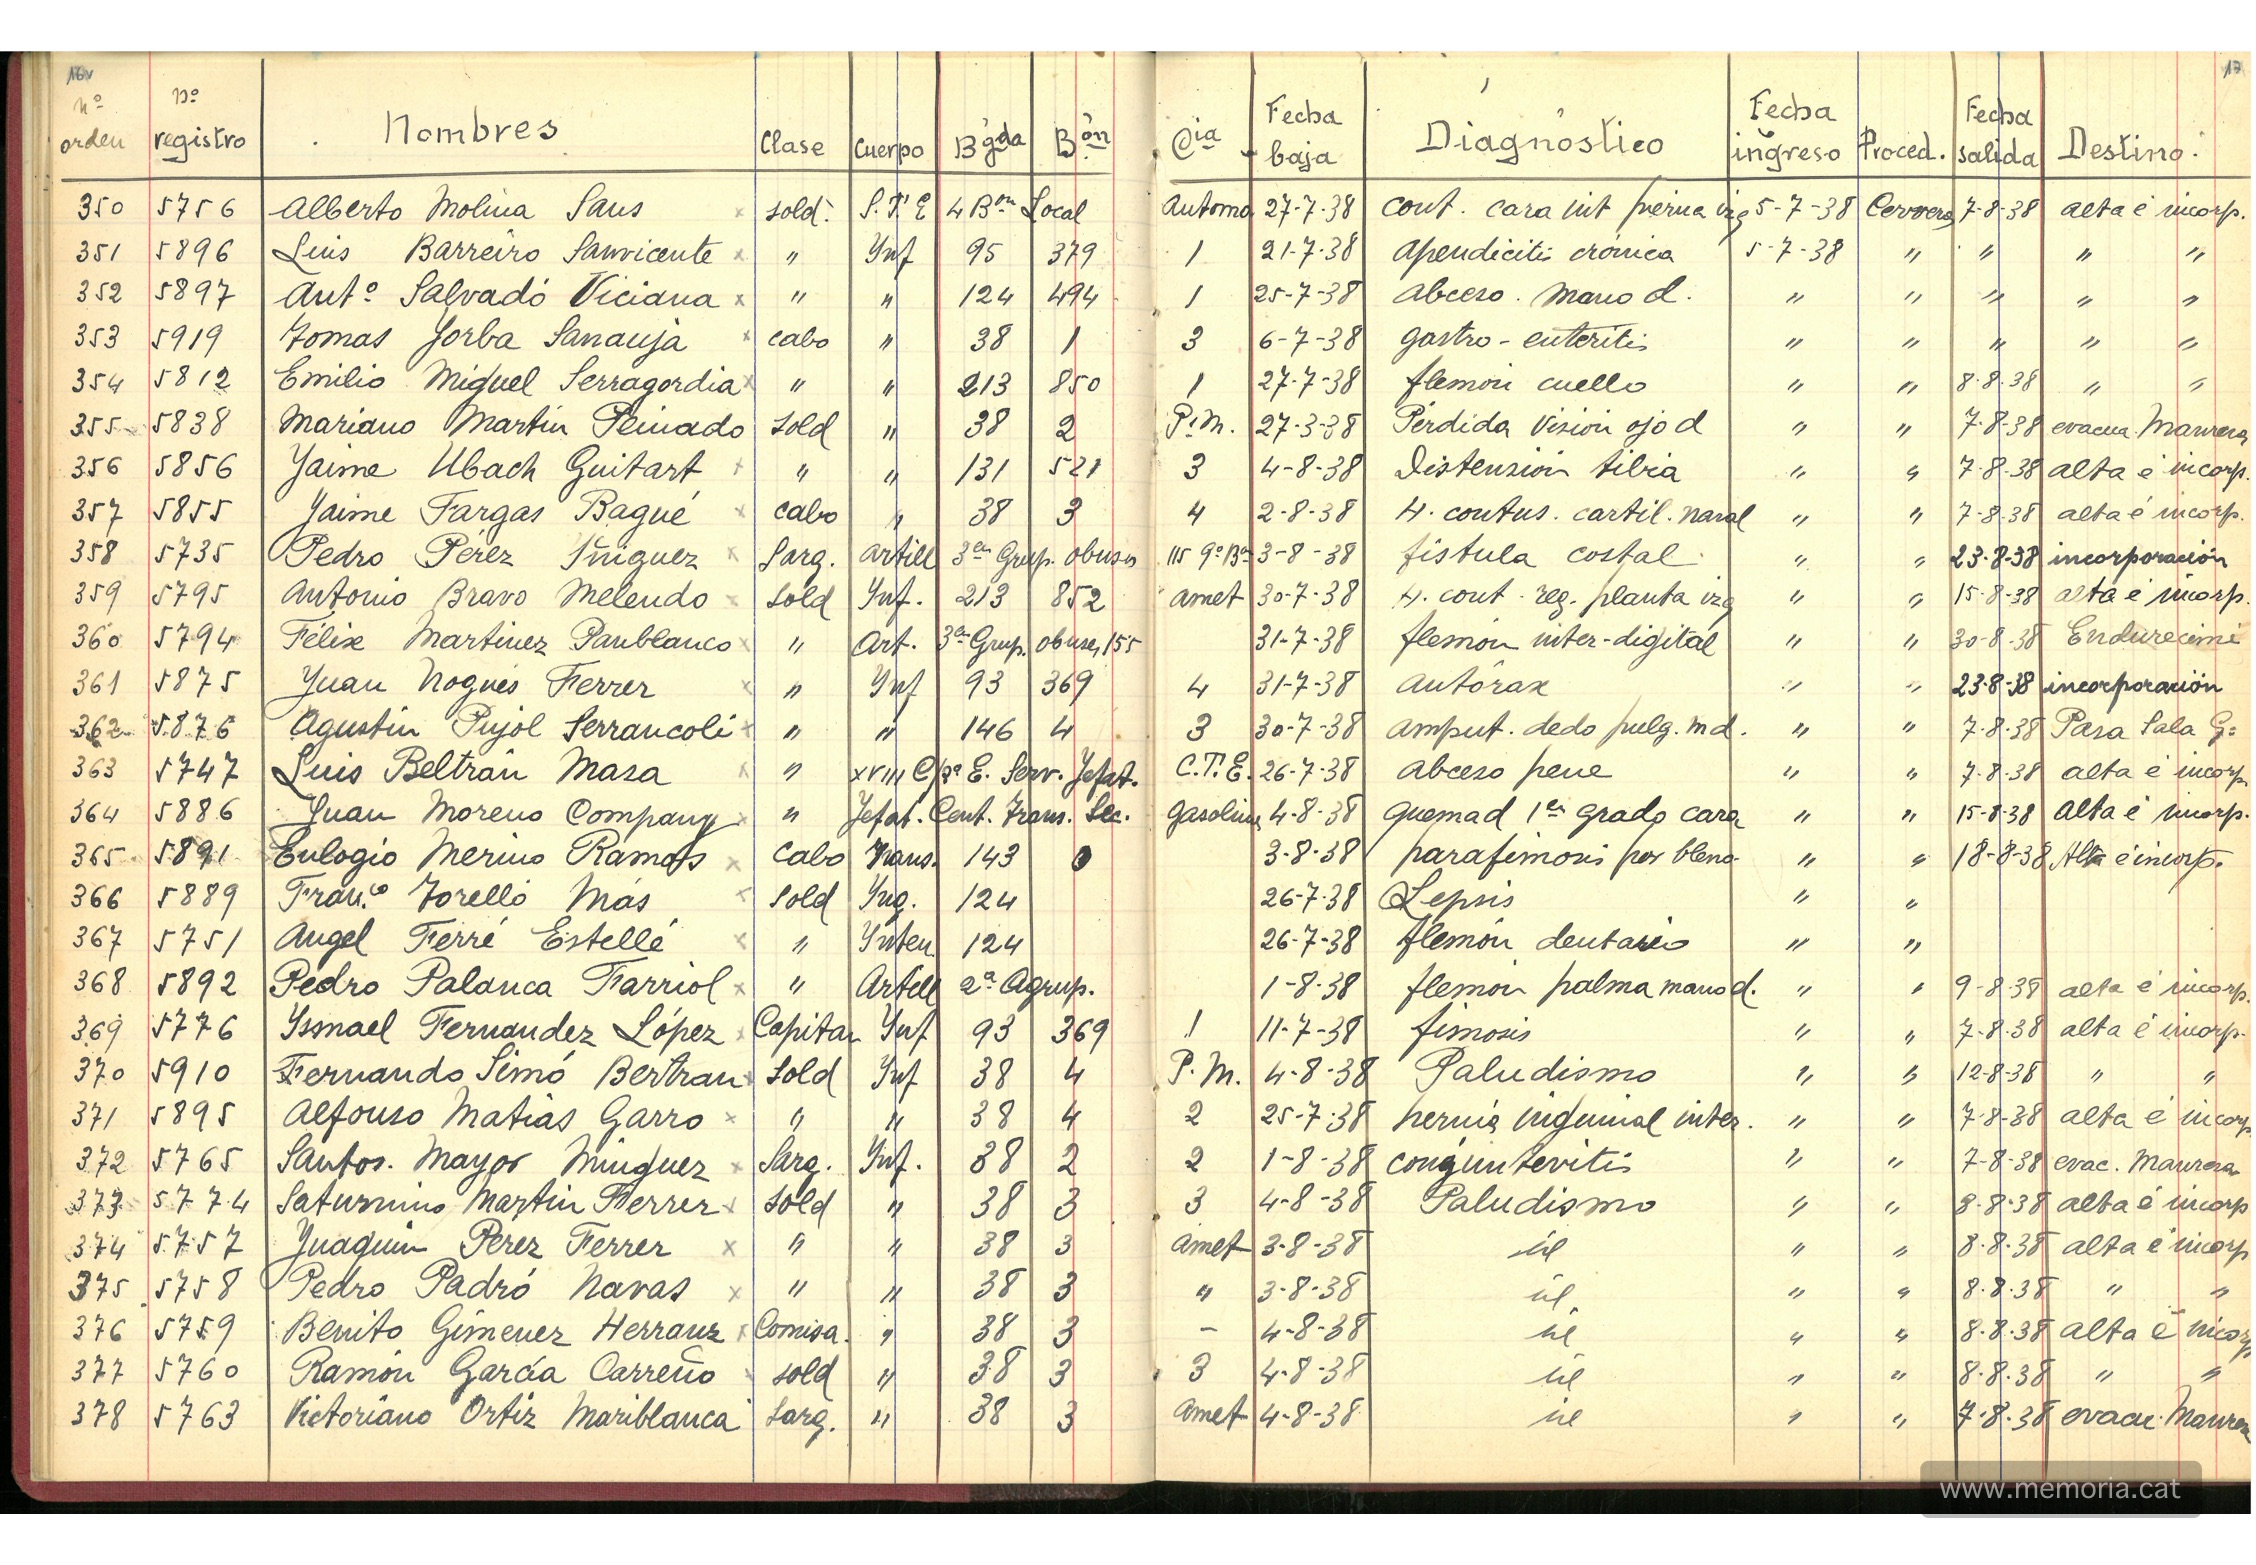 16v 17
nº orden nº registro Nombres Clase Cuerpo Bgda Bón Cia Fecha baja Diagnóstico Fecha ingreso Proced. Fecha salida Destino
350 5756 Alberto Molina Sans x sold. S.T.E 4 Bon Local Automo 27-7-38 cont. cara int pierna izq 5-7-38 Cervera 7-8-38 alta é incorp.
351 5896 Luis Barreiro Sanvicente x " Ynf 95 379 1 21-7-38 apendicitis crónica 5-7-38 " " " "
352 5897 Antº Salvadó Viciana x " " 124 494 1 25-7-38 abceso. mano d. " " " " "
353 5919 Tomas Jorba Sanauja x cabo " 38 1 3 6-7-38 gastro-enteritis " " " " "
354 5812 Emilio Miguel Serragordia x " " 213 850 1 27-7-38 flemón cuello " " 8-8-38 " "
355 5838 Mariano Martin Peinado sold " 38 2 P.M. 27-3-38 Pérdida Visión ojo d " " 7-8-38 evacua. Manresa
356 5856 Jaime Ubach Guitart x " " 131 521 3 4-8-38 Distensión tibia " " 7-8-38 alta é incorp.
357 5855 Jaime Fargas Bagué x cabo " 38 3 4 2-8-38 H. contus. cartil. nasal " " 7-8-38 alta é incorp.
358 5735 Pedro Pérez Iñiguez x Sarg. Artill 3er Grup. obuses 115 9ª Ba 3-8-38 fistula costal " " 23-8-38 incorporación
359 5795 Antonio Bravo Melendo x sold Ynf. 213 852 amet 30-7-38 H. cont. reg. planta izq " " 15-8-38 alta é incorp.
360 5794 Félix Martinez Panblanco x " Art. 3er Grup. obuses 155 31-7-38 flemón inter-digital " " 30-8-38 Endurecimi
361 5875 Juan Nogués Ferrer x " Ynf 93 369 4 31-7-38 antórax " " 23-8-38 incorporación
362 5876 Agustin Pujol Serrancoli x " " 146 4 3 30-7-38 amput. dedo pulg. m d. " " 7-8-38 Pasa Sala G:
363 5747 Luis Beltrán Masa x " XVIII C pª E. Serv. Jefat. C.T.E. 26-7-38 abceso pene " " 7-8-38 alta é incorp
364 5886 Juan Moreno Company x " Jefat. Cent. Trans. Sec. gasolina 4-8-38 quemad 1er grado cara " " 15-8-38 alta é incorp.
365 5891 Eulogio Merino Ramos x cabo Trans. 143 0 3-8-38 parafimosis por bleno- " " 18-8-38 Alta é incorp.
366 5889 Franco Torelló Más x sold Yng. 124 26-7-38 Sepsis " "
367 5751 Angel Ferré Estellé x " Ynten 124 26-7-38 flemón dentario " "
368 5892 Pedro Palanca Farriol x " Artill 2ª Agrup. 1-8-38 flemón palma mano d. " " 9-8-38 alta é incorp.
369 5776 Ysmael Fernandez López x Capitan Ynf 93 369 1 11-7-38 fimosis " " 7-8-38 alta é incorp.
370 5910 Fernando Simó Bertran x sold Ynf 38 4 P.M. 4-8-38 Paludismo " " 12-8-38 " "
371 5895 Alfonso Matias Garro x " " 38 4 2 25-7-38 hernia inguinal inter. " " 7-8-38 alta é incorp
372 5765 Santos. Mayor Minguez x Sarg. Ynf. 38 2 2 1-8-38 congintevitis " " 7-8-38 evac. Manresa
373 5774 Saturnino Martin Ferrer x sold " 38 3 3 4-8-38 Paludismo " " 8-8-38 alta é incorp
374 5757 Juaquin Perez Ferrer x " " 38 3 Amet 3-8-38 id " " 8-8-38 alta é incorp
375 5758 Pedro Padró Navas x " " 38 3 " 3-8-38 id " " 8-8-38 " "
376 5759 Benito Gimenez Herranz x Comisa. " 38 3 - 4-8-38 id " " 8-8-38 alta é incorp
377 5760 Ramón García Carreño x sold " 38 3 3 4-8-38 id " " 8-8-38 " "
378 5763 Victoriano Ortiz Mariblanca Sarg. " 38 3 Amet 4-8-38 id " " 7-8-38 evacu. Manresa
www.memoria.cat